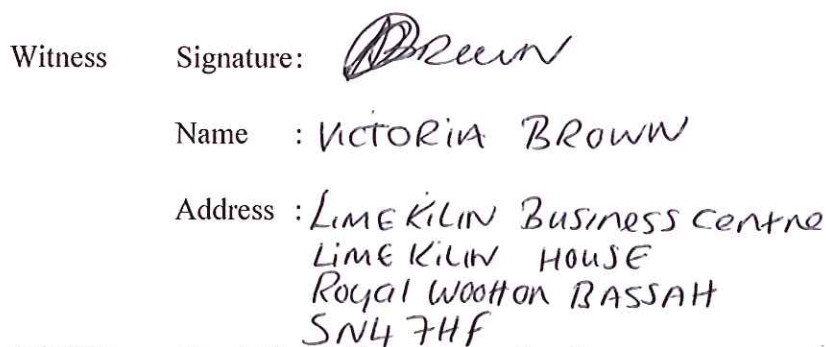 Witness Signature: Brown
Name : VICTORIA BROWN
Address : LIME KILIN Business Centre
LIME KILIN HOUSE
Royal Wootton BASSAH
SN4 7HF